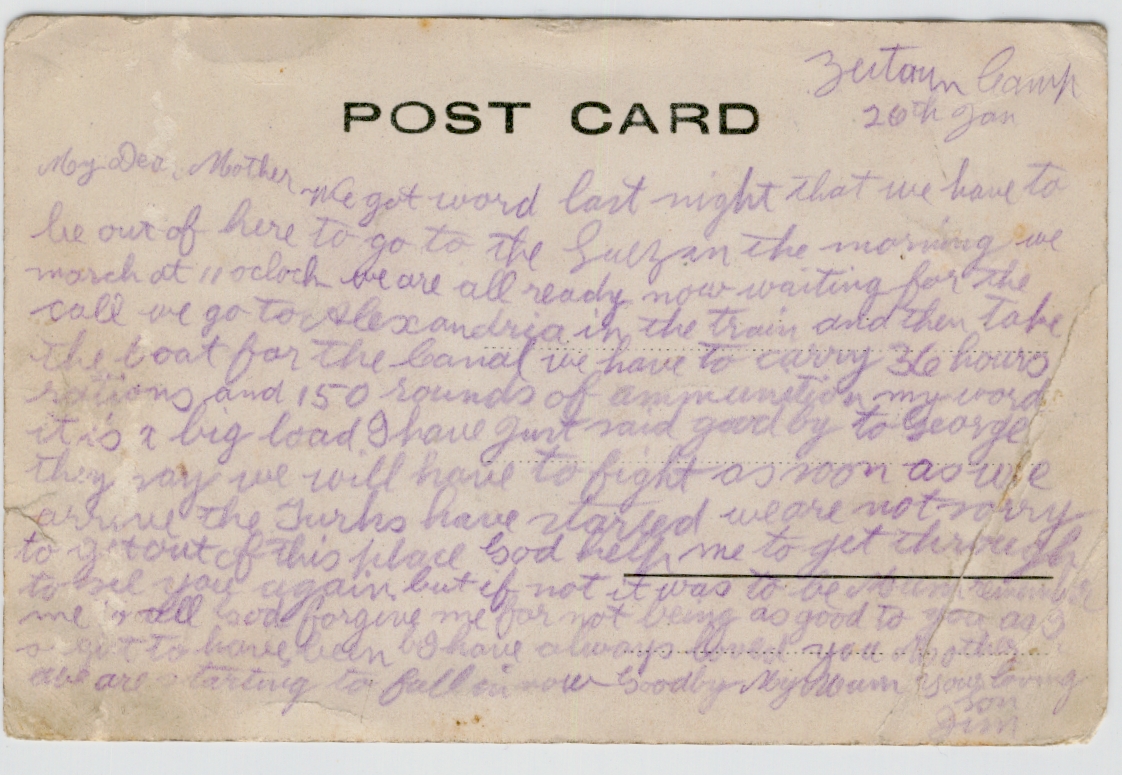 Zeitoun Camp
26th Jan
POST CARD
My Dear Mother
We got word last night that we have to
be out of here to go to the Suez in the morning we
march at 11 oclock we are all ready now waiting for the
call we go to Alexandria in the train and then take
the boat for the Canal we have to carry 36 hours
rations and 150 rounds of ammunetion my word
it is a big load I have just said good by to George
they say we will have to fight as soon as we
arrive the Turks have started we are not sorry
to get out of this place God help me to get through
to see you again but if not it was to be Mum remember
me to all God forgive me for not being as good to you as I
ought to have been I have always loved you Mother
we are starting to fall in now Goodby My Mum your loving
son
Jim